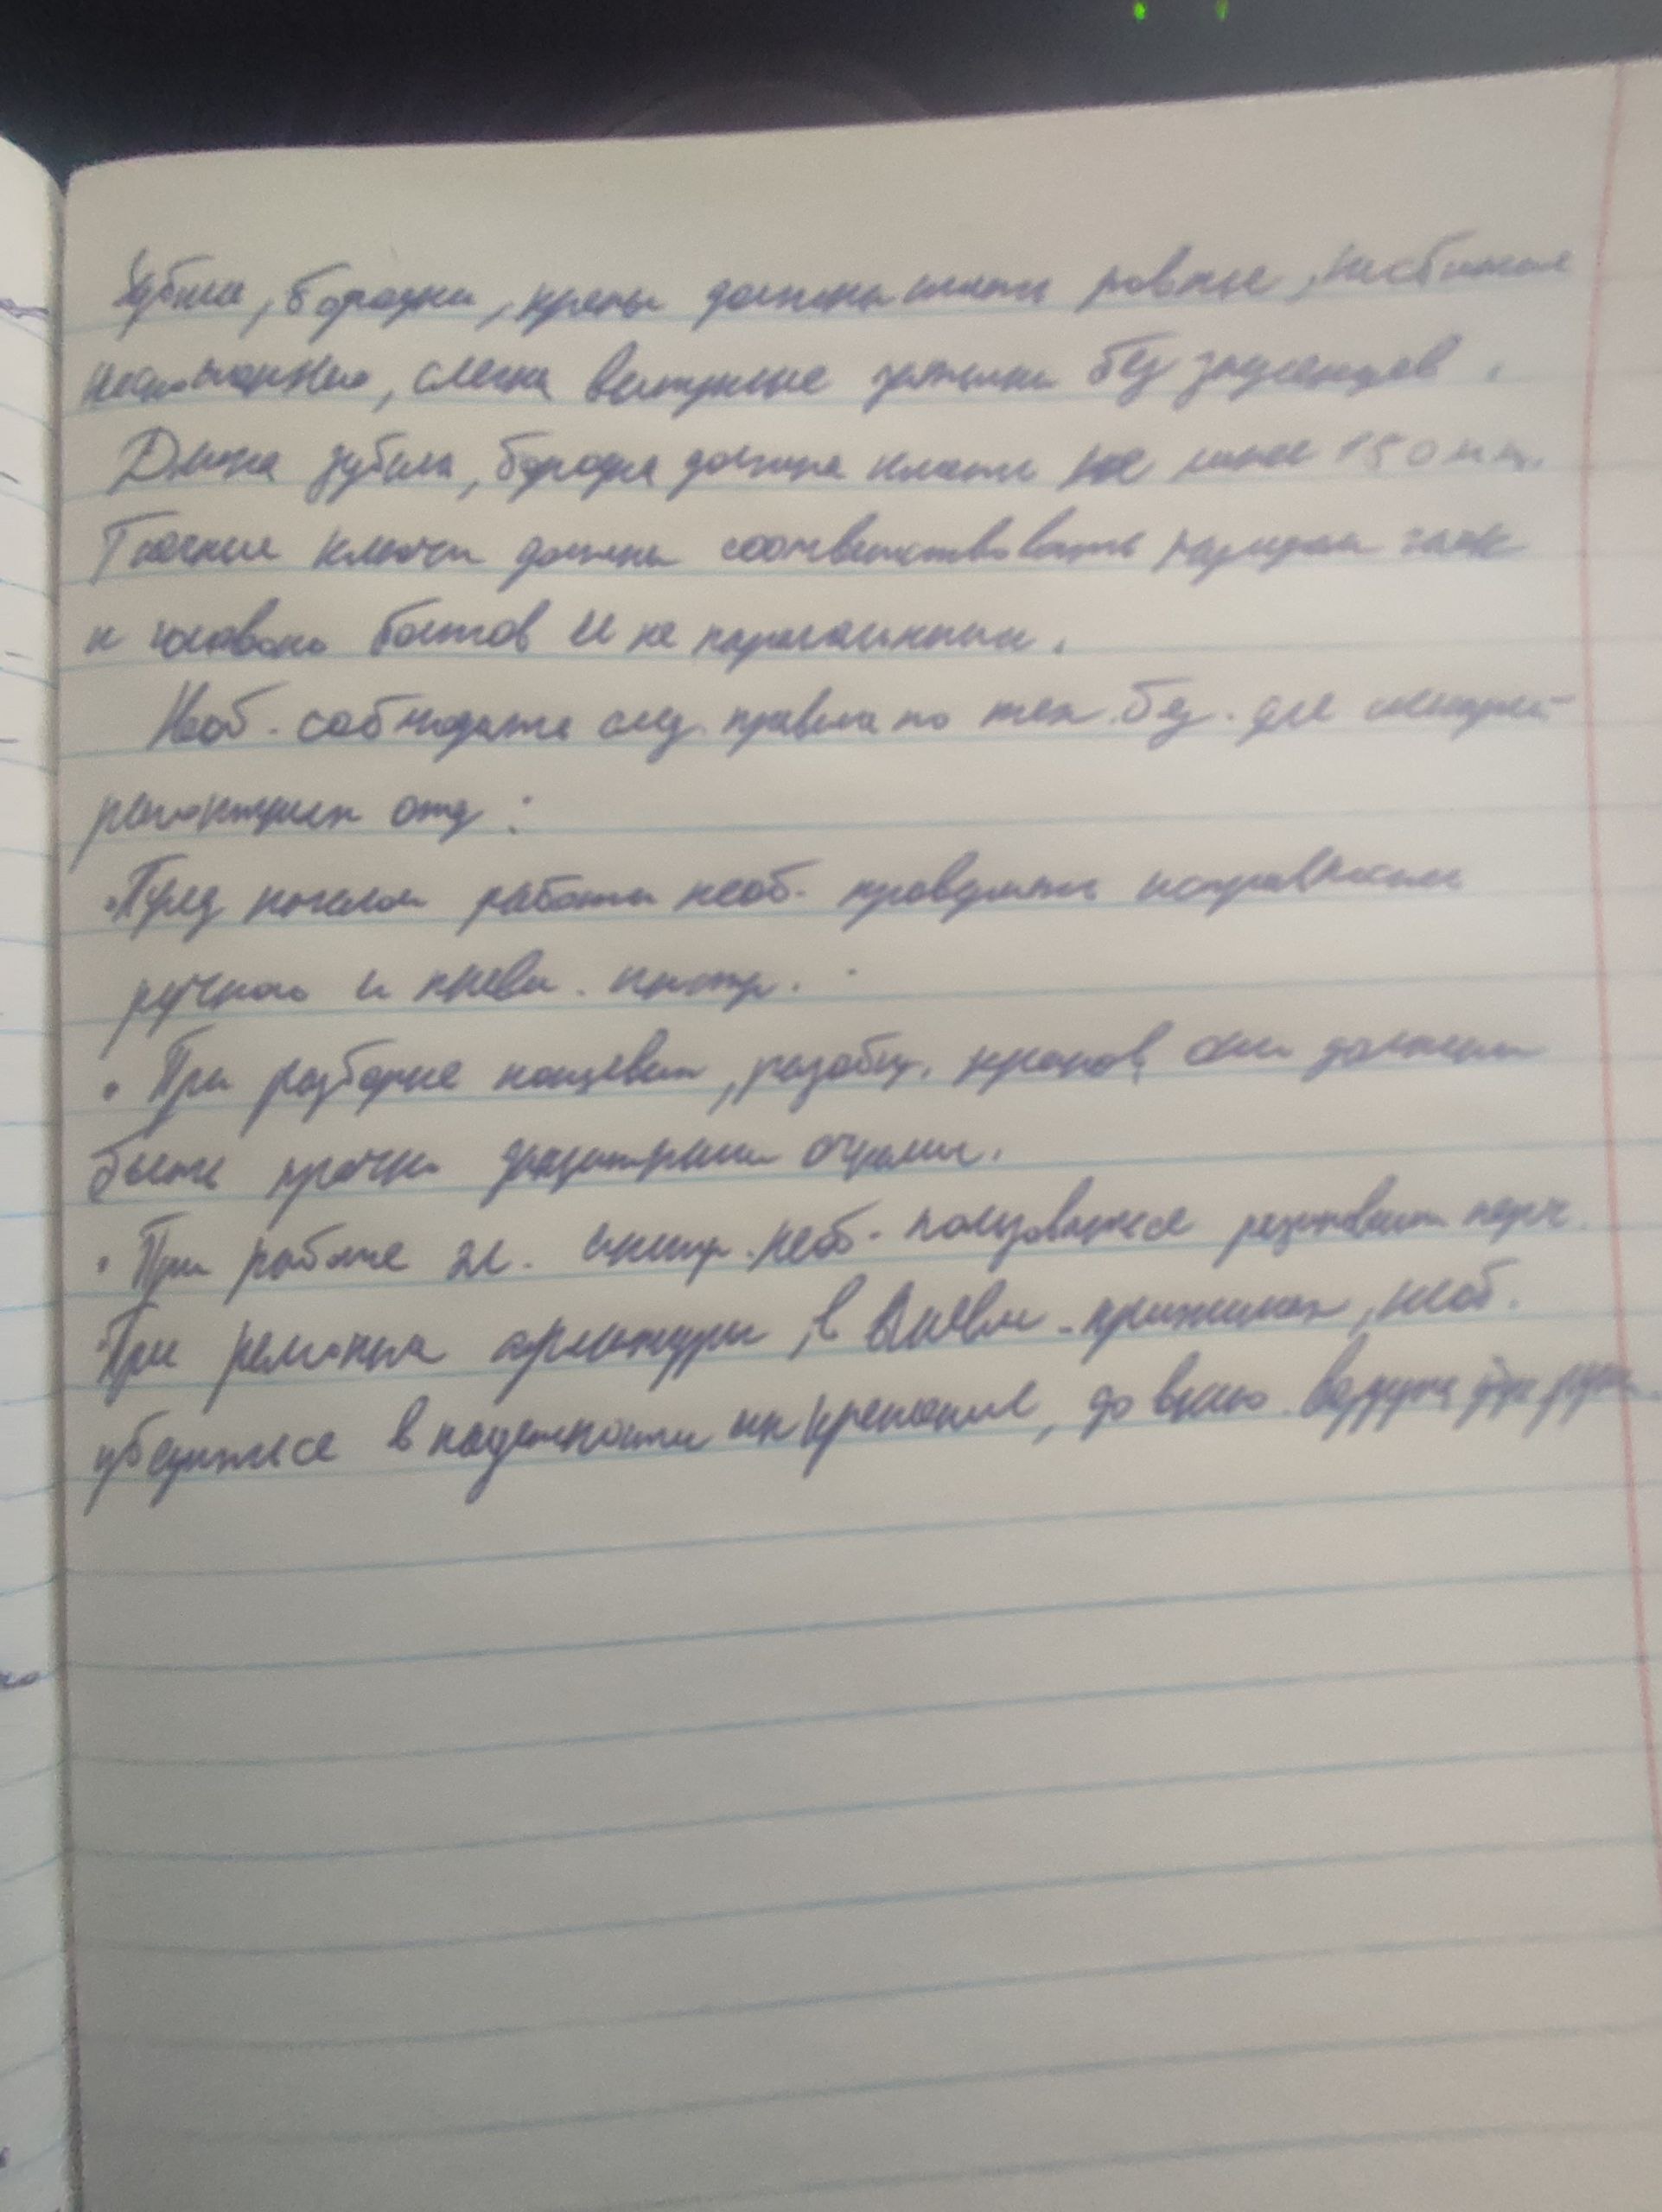 Зубила, бородки, керны должны иметь ровные, несбитые
слегка выпуклые затылки без заусенцев.
Длина зубила, бородка должна иметь не менее 150 мм.
Гаечные ключи должны соответствовать размерам гаек
и головок болтов и не
Необ. соблюдать след. правила по тех. без. для слесарей
отд:
• Перед началом работы необ. проверить исправность
ручного и пневм. инстр.
• При разборке концевых, разобщ. кранов, они должны
быть очками.
• При работе эл. инстр. необ. пользоваться резиновыми перч.
• При ремонте арматуры, в пневм. прижимах, необ.
убедиться в надежности их крепления, до воздуха